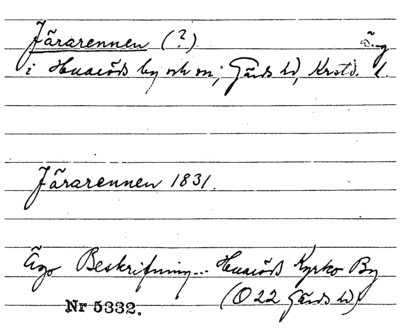 Järarennen (?) äng
i Huaröds by och sn; Gärds hd, Krstd. l.
Järarennen 1831.
Ägo Beskrifning... Huaröds Kyrko By
(O 22 Gärds hd)
Nr 5332.